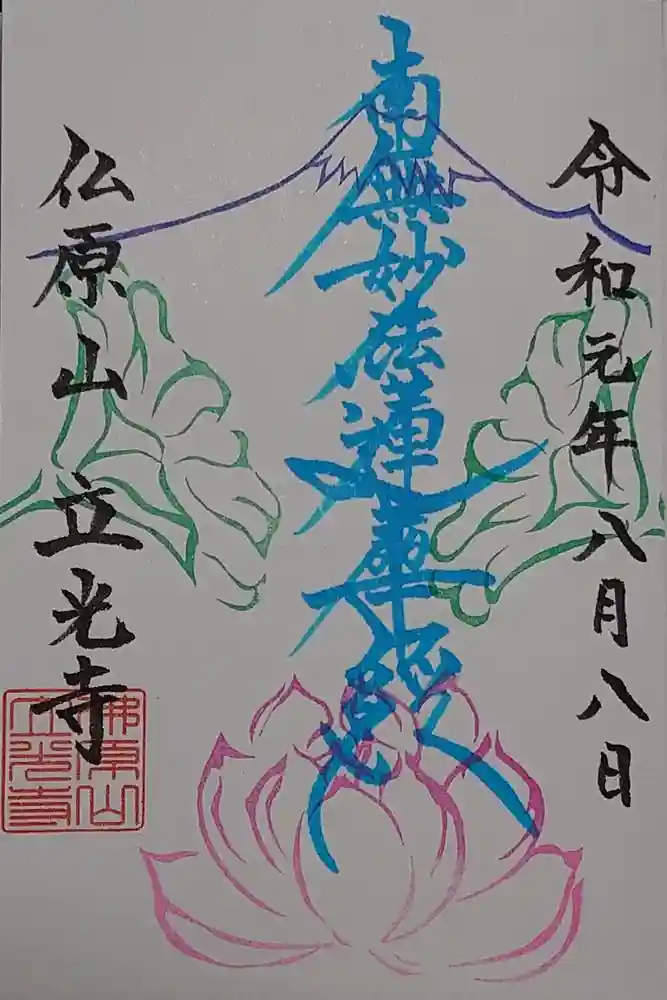 令和元年八月八日
南無妙法蓮華経
仏原山 立光寺
佛原山
立光寺